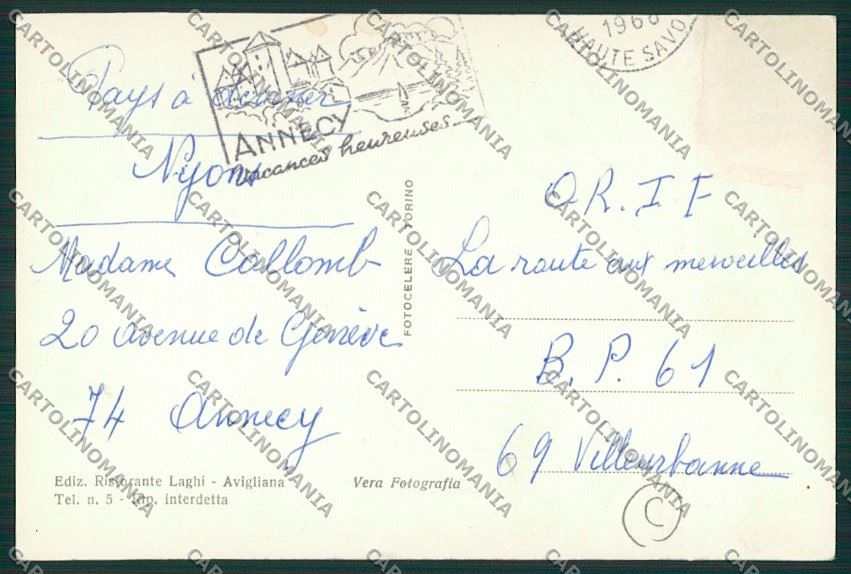 1966
HAUTE SAVO
ANNECY
Vacances heureuses
Pays à deviner
Nyons
Madame Collomb
20 avenue de Genève
74 Annecy
Ediz. Ristorante Laghi - Avigliana
Tel. n. 5 - Rip. interdetta
Vera Fotografia
FOTOCELERE TORINO
O.R.I F
La route aux merveilles
B.P. 61
69 Villeurbanne
C
CARTOLINOMANIA